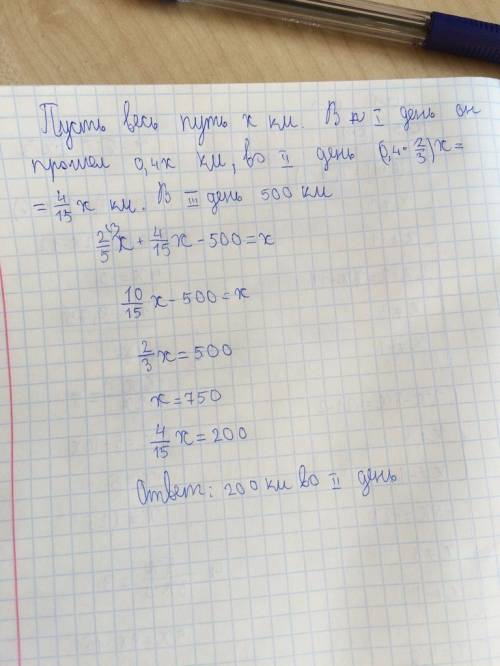 Пусть весь путь x км. В I день он
прошел 0,4x км, во II день (0,4·2/3)x=
= 4/15 x км. В III день 500 км
2/5 x + 4/15 x - 500 = x
10/15 x - 500 = x
2/3 x = 500
x = 750
4/15 x = 200
Ответ: 200 км во II день